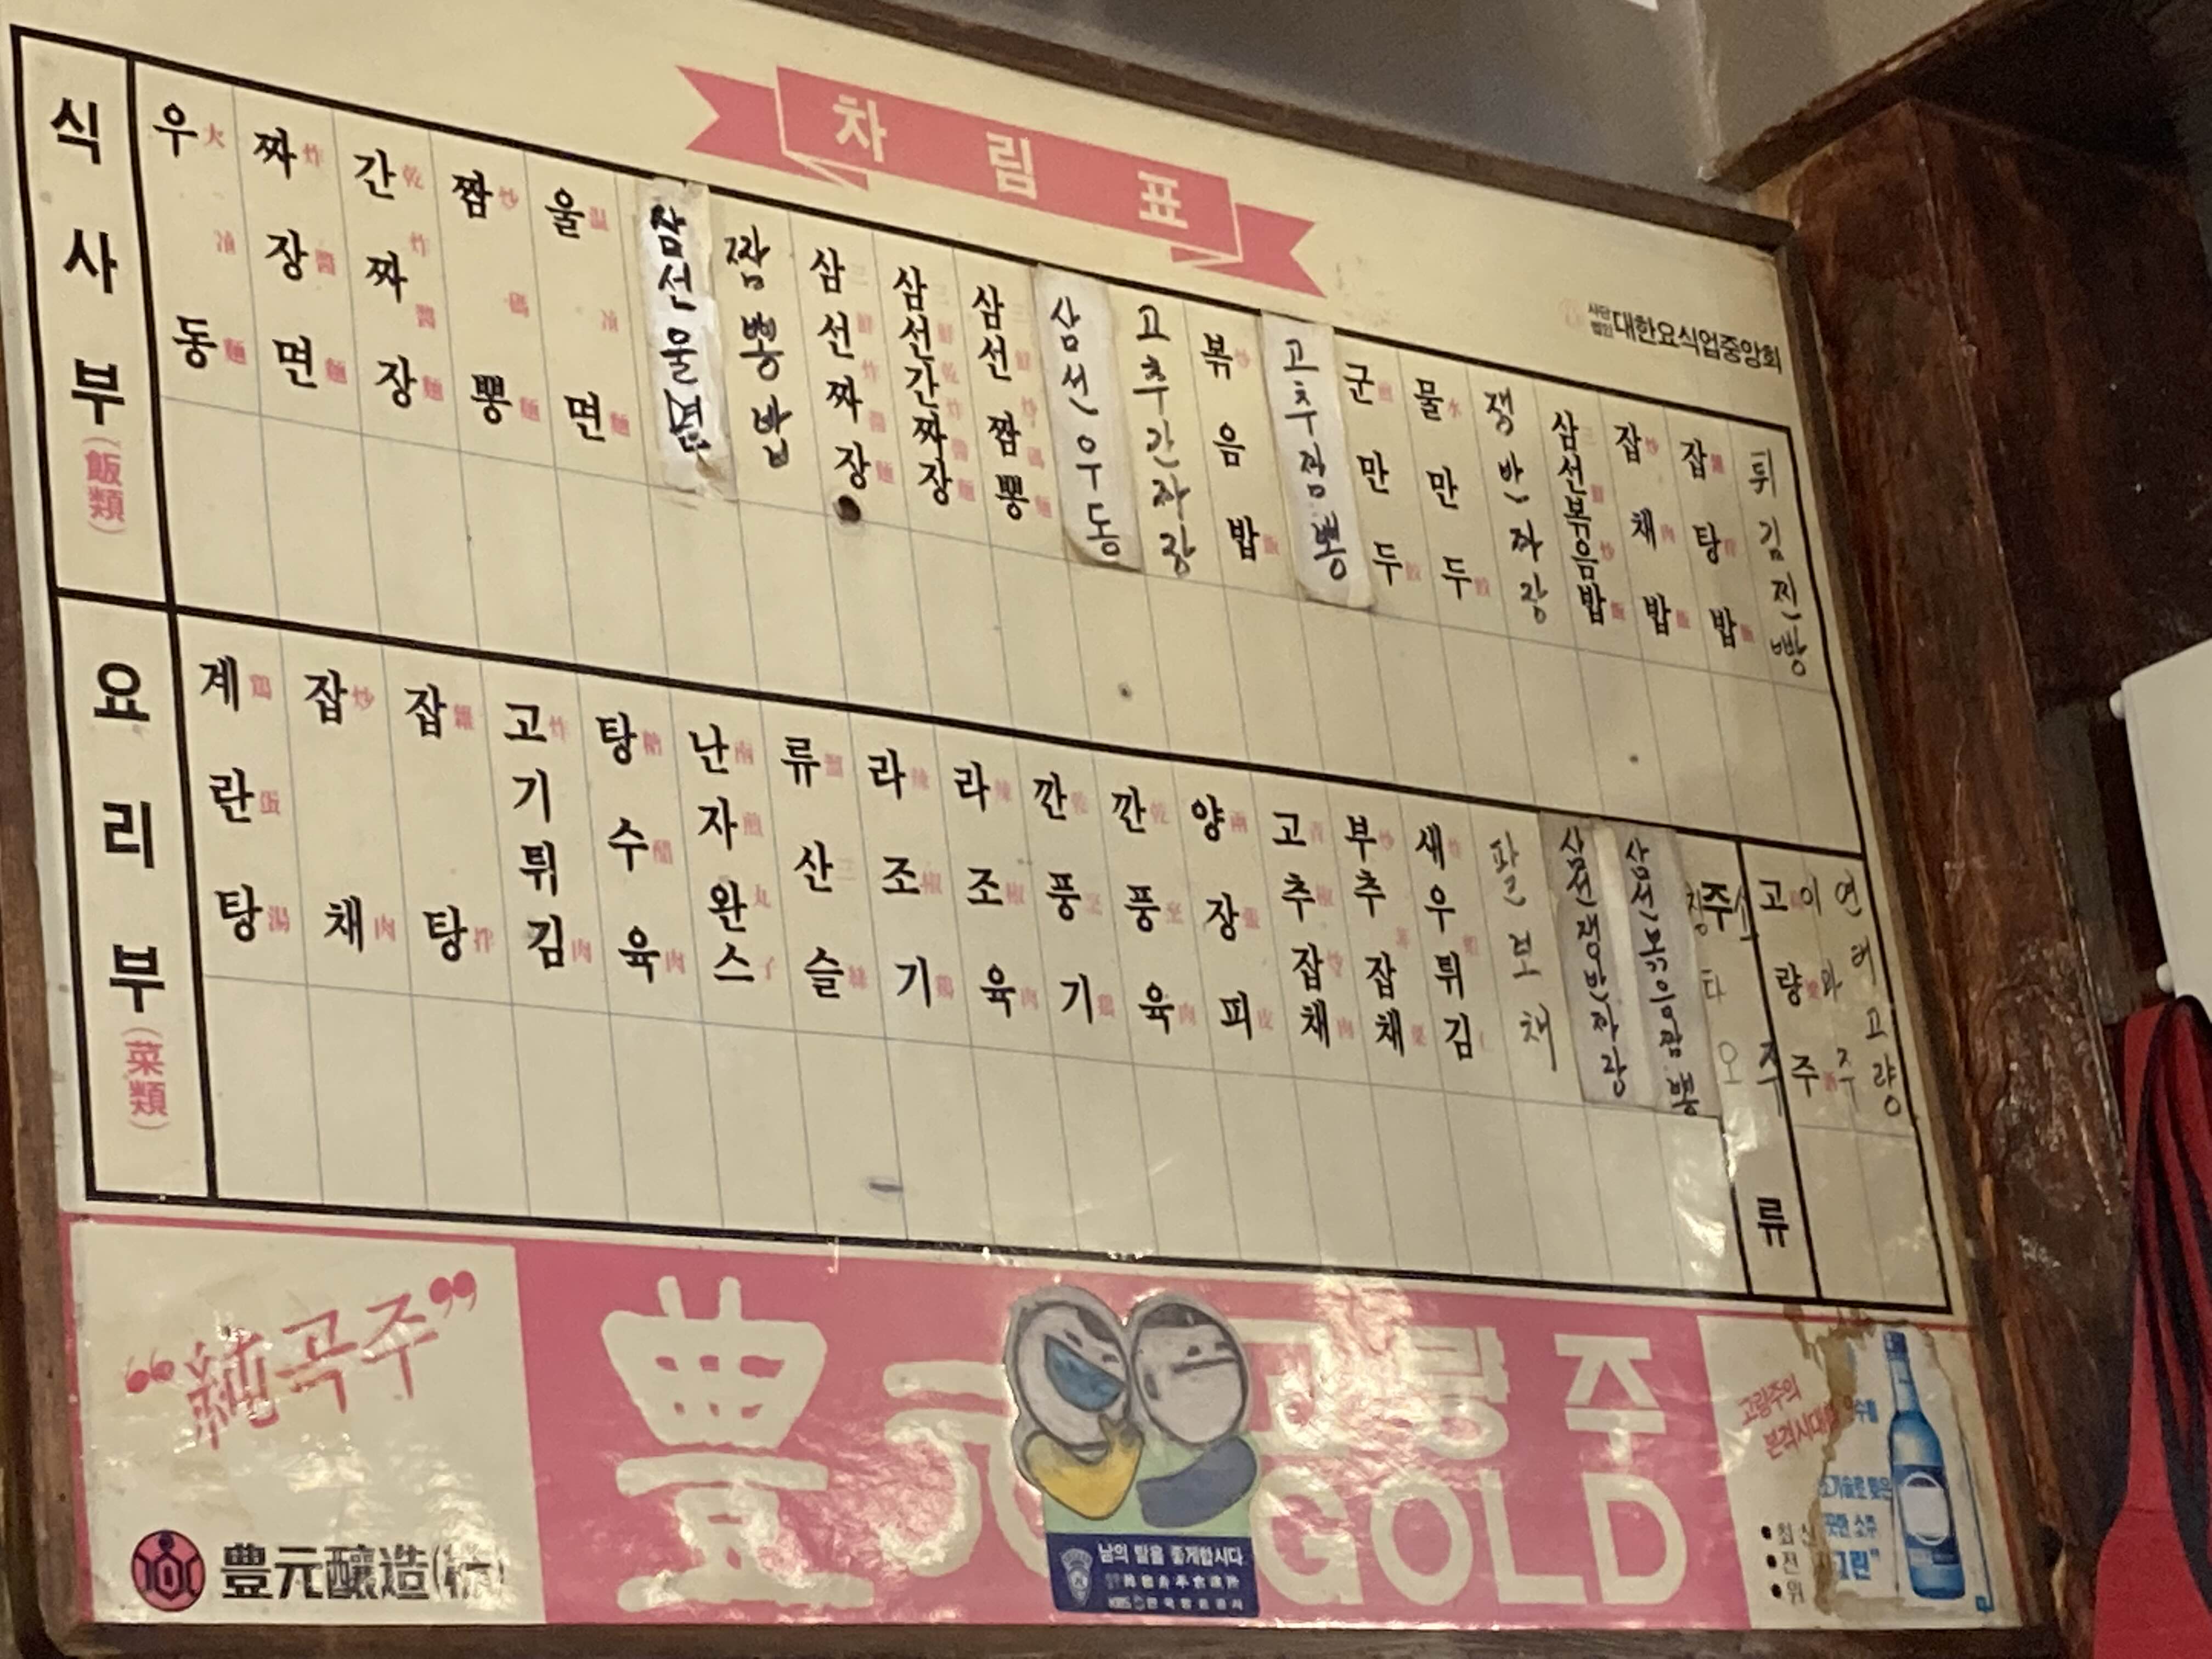 차림표
사단법인 대한요식업중앙회
식사부 (飯類)
우동
짜장면
간짜장
짬뽕
울면
삼선울면
짬뽕밥
삼선짜장
삼선간짜장
삼선짬뽕
삼선우동
고추간짜장
볶음밥
고추짬뽕
군만두
물만두
쟁반짜장
삼선볶음밥
잡채밥
잡탕밥
튀김찐빵
요리부 (菜類)
계란탕 鷄蛋湯
잡채
잡탕
고기튀김
탕수육
난자완스
류산슬
라조기
라조육
깐풍기
깐풍육
양장피
고추잡채
부추잡채
새우튀김
팔보채
삼선쟁반짜장
삼선볶음짬뽕
주류
고량주
이과주
연태고량
"純곡주"
豊元釀造(株)
豊元고량주
GOLD
남의 말을 좋게합시다
고량주의
본격시대를